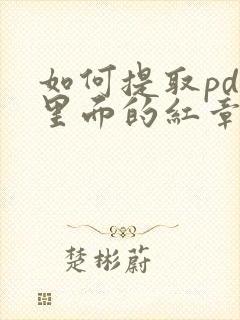 如何提取pd
里面的红章
楚彬蔚